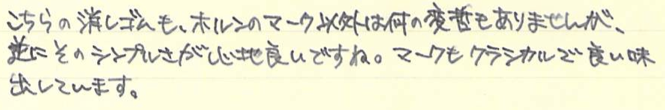 こちらの消しゴムも、ホルンのマーク以外は何の変哲もありませんが、
逆にそのシンプルさが心地良いですね。マークもクラシカルで良い味
出しています。